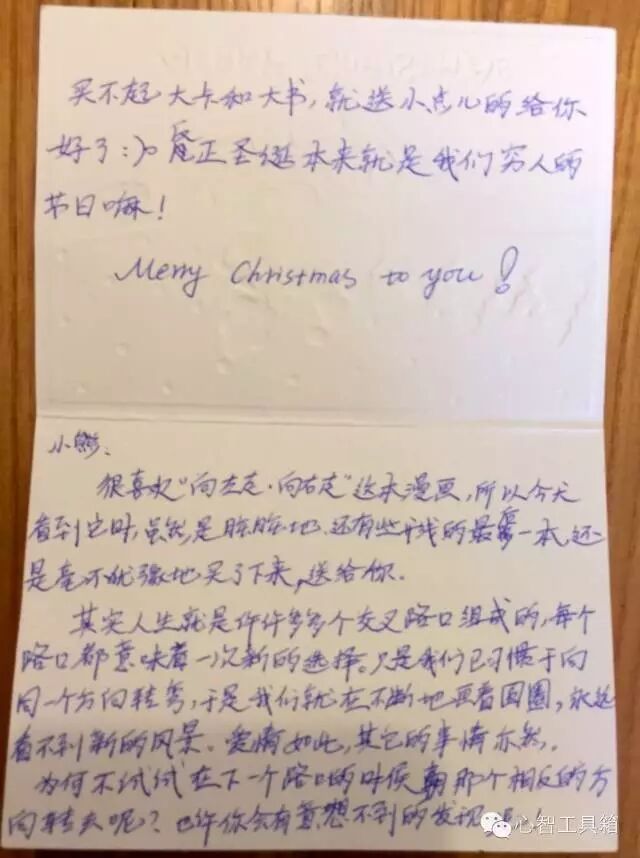 买不起大卡和大书，就送小点儿的给你
好了:)。反正圣诞本来就是我们穷人的
节日嘛！
Merry Christmas to you!
小熊、
很喜欢"向左走·向右走"这本漫画，所以今天
看到它时，虽然是脏脏地、还有些残的最后一本，还
是毫不犹豫地买了下来，送给你。
其实人生就是许许多多个交叉路口组成的，每个
路口都意味着一次新的选择。只是我们已习惯于向
同一个方向转弯，于是我们就在不断地画着圆圈，永远
看不到新的风景。爱情如此，其它的事情亦然。
为何不试试在下一个路口的时候朝那个相反的方
向转去呢？也许你会有意想不到的发现
心智工具箱